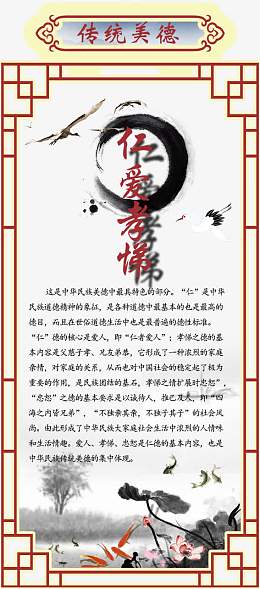 传统美德
仁爱孝悌
这是中华民族美德中最具特色的部分。“仁”是中华
民族道德精神的象征，是各种道德中最基本的也是最高的
德目，而且在世俗道德生活中也是最普遍的德性标准。
“仁”德的核心是爱人，即“仁者爱人”；孝悌之德的基
本内容是父慈子孝、兄友弟恭，它形成了一种浓烈的家庭
亲情，对家庭的关系，从而也对中国社会的稳定起了极为
重要的作用，是民族团结的基石。孝悌之情扩展时忠恕”，
“忠恕”之德的基本要求是以诚待人，推己及人，即“四
海之内皆兄弟”，“不独亲其亲，不独子其子”的社会风
尚。由此形成了中华民族大家庭社会生活中浓烈的人情味
和生活情趣。爱人、孝悌、忠恕是仁德的基本内容，也是
中华民族传统美德的集中体现。